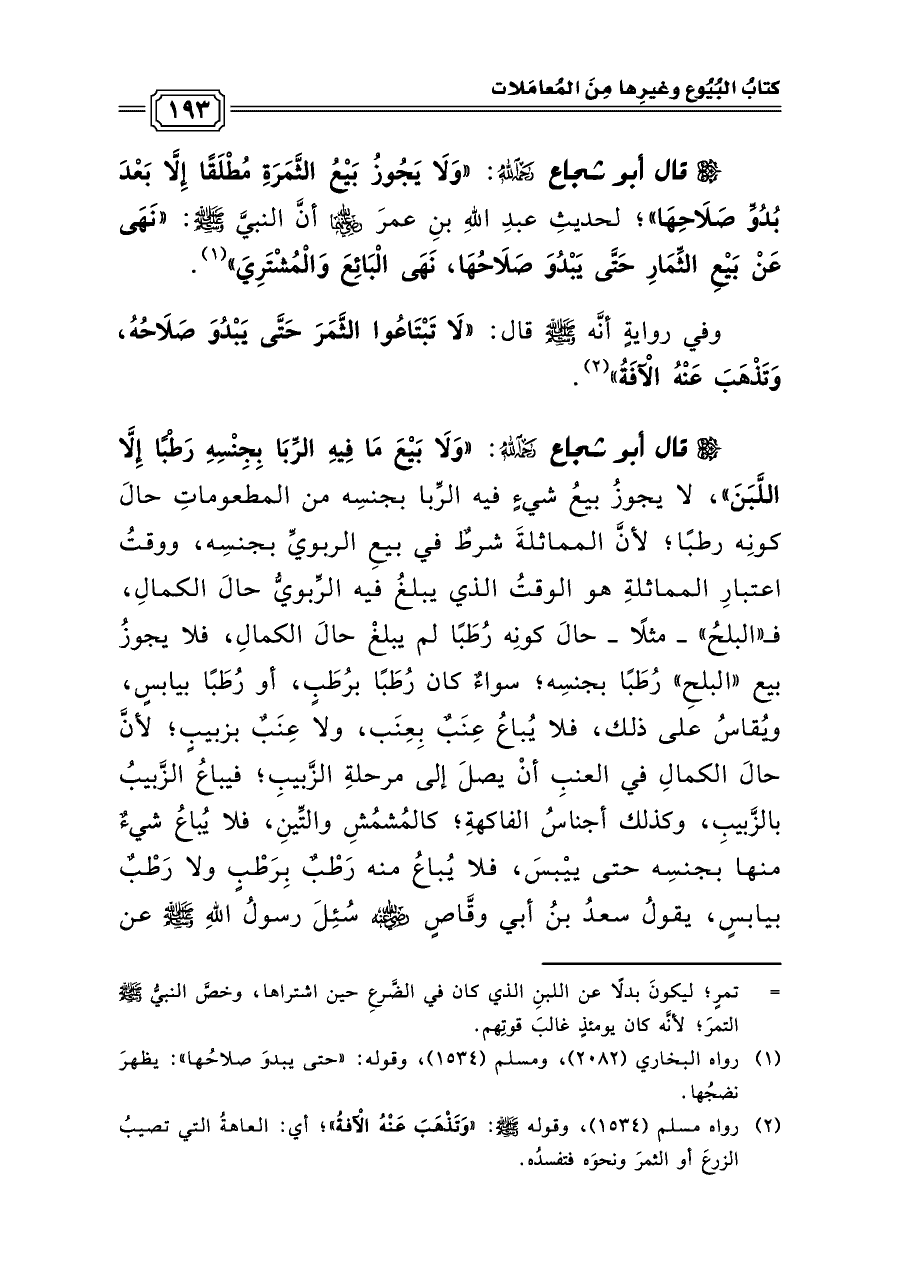 كتابُ البُيُوع وغيرِها مِنَ المُعامَلات
١٩٣
قال أبو شجاع رَحِمَهُ اللهُ: «وَلَا يَجُوزُ بَيْعُ الثَّمَرَةِ مُطْلَقًا إِلَّا بَعْدَ
بُدُوِّ صَلَاحِهَا»؛ لحديثِ عبدِ اللهِ بنِ عمرَ رضي الله عنهما أنَّ النبيَّ ﷺ: «نَهَى
عَنْ بَيْعِ الثِّمَارِ حَتَّى يَبْدُوَ صَلَاحُهَا، نَهَى الْبَائِعَ وَالْمُشْتَرِيَ»(١).
وفي روايةٍ أنَّه ﷺ قال: «لَا تَبْتَاعُوا الثَّمَرَ حَتَّى يَبْدُوَ صَلَاحُهُ،
وَتَذْهَبَ عَنْهُ الْآفَةُ»(٢).
قال أبو شجاع رَحِمَهُ اللهُ: «وَلَا بَيْعَ مَا فِيهِ الرِّبَا بِجِنْسِهِ رَطْبًا إِلَّا
اللَّبَنَ»، لا يجوزُ بيعُ شيءٍ فيه الرِّبا بجنسِه من المطعوماتِ حالَ
كونِه رطبًا؛ لأنَّ المماثلةَ شرطٌ في بيعِ الربويِّ بجنسِه، ووقتُ
اعتبارِ المماثلةِ هو الوقتُ الذي يبلغُ فيه الرِّبويُّ حالَ الكمالِ،
فـ«البلحُ» ـ مثلًا ـ حالَ كونِه رُطَبًا لم يبلغْ حالَ الكمالِ، فلا يجوزُ
بيع «البلحِ» رُطَبًا بجنسِه؛ سواءٌ كان رُطَبًا برُطَبٍ، أو رُطَبًا بيابسٍ،
ويُقاسُ على ذلك، فلا يُباعُ عِنَبٌ بِعِنَب، ولا عِنَبٌ بزبيبٍ؛ لأنَّ
حالَ الكمالِ في العنبِ أنْ يصلَ إلى مرحلةِ الزَّبيبِ؛ فيباعُ الزَّبيبُ
بالزَّبيبِ، وكذلك أجناسُ الفاكهةِ؛ كالمُشمُشِ والتِّينِ، فلا يُباعُ شيءٌ
منها بجنسِه حتى ييْبسَ، فلا يُباعُ منه رَطْبٌ بِرَطْبٍ ولا رَطْبٌ
بيابسٍ، يقولُ سعدُ بنُ أبي وقَّاصٍ رضي الله عنه سُئِلَ رسولُ اللهِ ﷺ عن
= تمرٍ؛ ليكونَ بدلًا عن اللبنِ الذي كان في الضَّرعِ حين اشتراها، وخصَّ النبيُّ ﷺ
التمرَ؛ لأنَّه كان يومئذٍ غالبَ قوتِهم.
(١) رواه البخاري (٢٠٨٢)، ومسلم (١٥٣٤)، وقوله: «حتى يبدوَ صلاحُها»: يظهرَ
نضجُها.
(٢) رواه مسلم (١٥٣٤)، وقوله ﷺ: «وَتَذْهَبَ عَنْهُ الْآفةُ»؛ أي: العاهةُ التي تصيبُ
الزرعَ أو الثمرَ ونحوَه فتفسدُه.